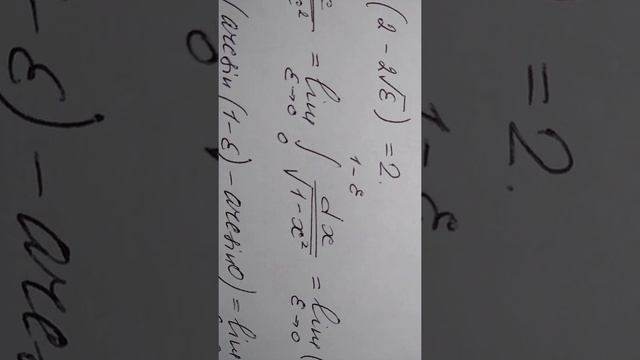 (2 - 2√ε) = 2.
= lim ∫₀^{1-ε} dx/√(1-x²) = lim (
ε→0 ε→0
(arcsin(1-ε) - arcsin0) = lim